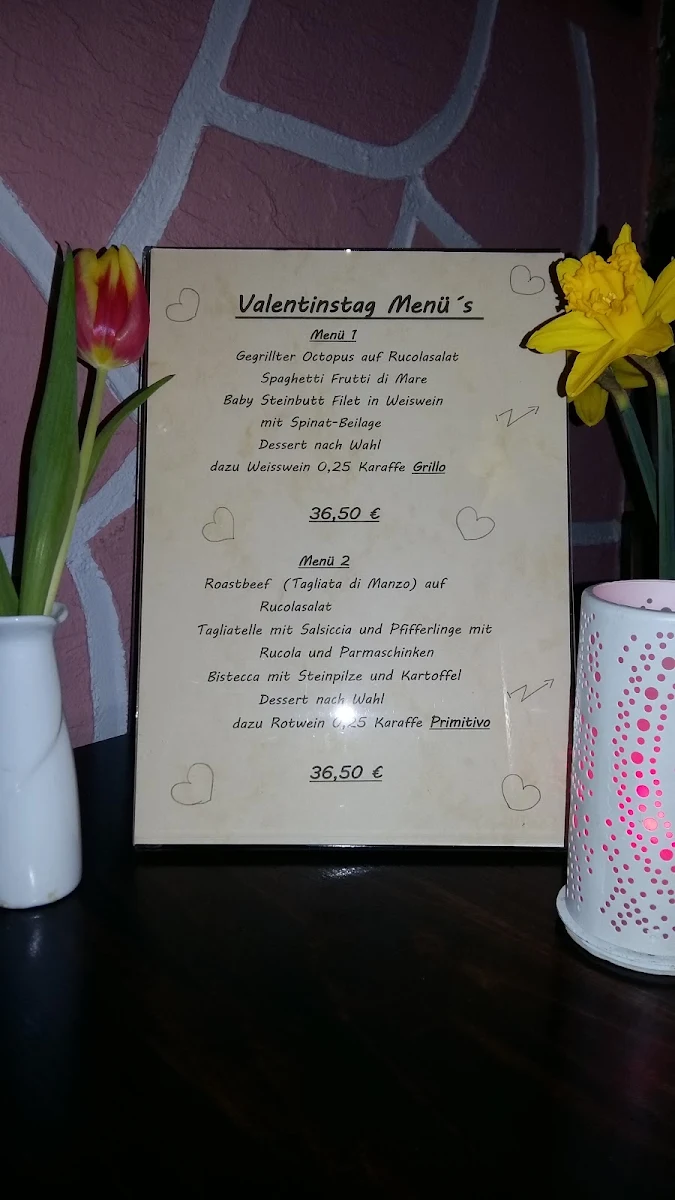 Valentinstag Menü´s
Menü 1
Gegrillter Octopus auf Rucolasalat
Spaghetti Frutti di Mare
Baby Steinbutt Filet in Weiswein
mit Spinat-Beilage
Dessert nach Wahl
dazu Weisswein 0,25 Karaffe Grillo
36,50 €
Menü 2
Roastbeef (Tagliata di Manzo) auf
Rucolasalat
Tagliatelle mit Salsiccia und Pfifferlinge mit
Rucola und Parmaschinken
Bistecca mit Steinpilze und Kartoffel
Dessert nach Wahl
dazu Rotwein 0,25 Karaffe Primitivo
36,50 €